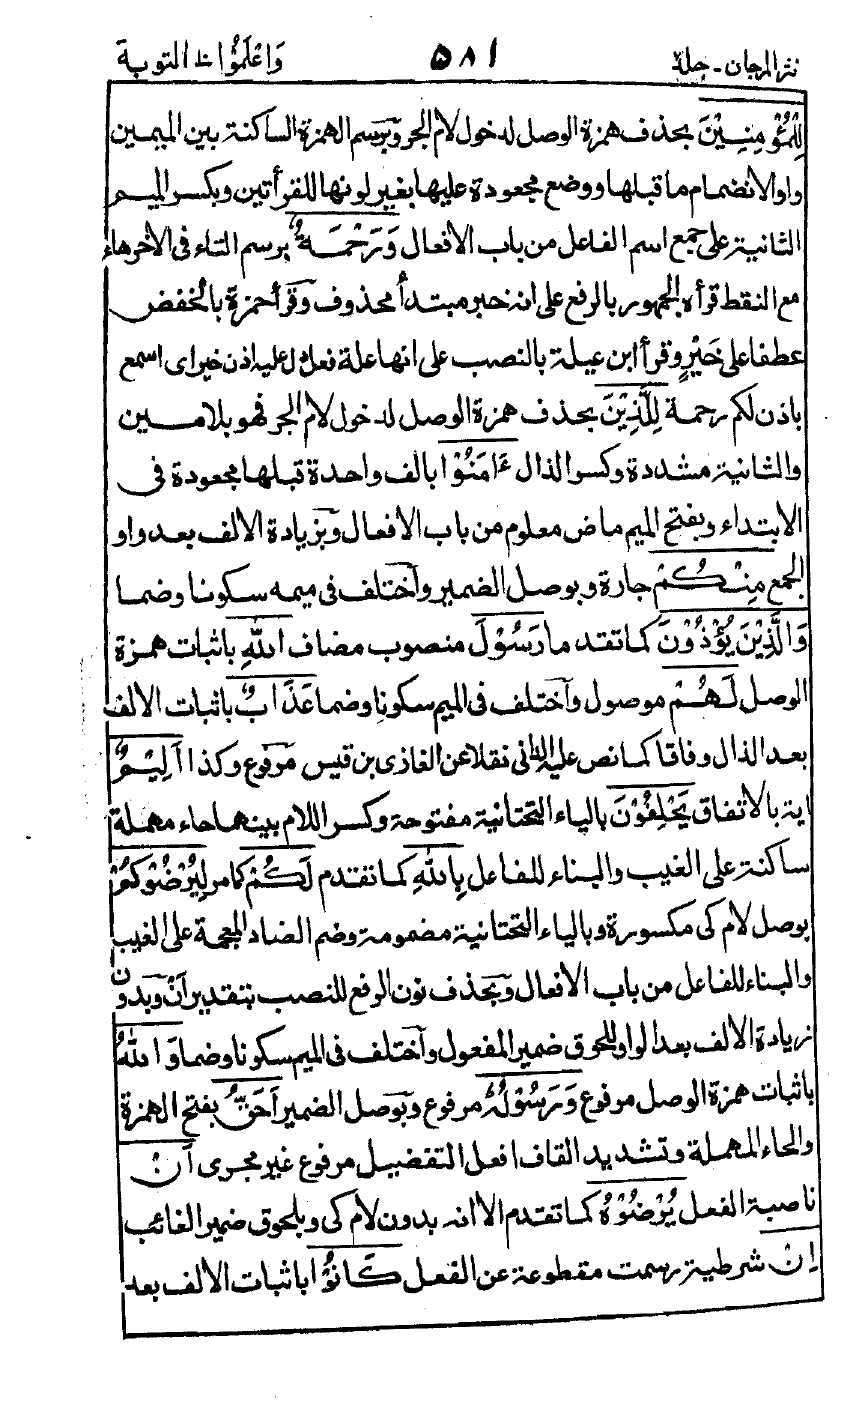 نثر المرجان - جلد ٥٨١ وَاعْلَمُوْا التوبة
لِلْمُؤْمِنِيْنَ بحذف همزة الوصل لدخول لام الجر وبرسم الهمزة الساكنة بين الميمين
واوا لانضمام ما قبلها ووضع مجعودة عليها بغير لونها للقرأتين وبكسر الميم
الثانية على جمع اسم الفاعل من باب الافعال وَرَحْمَةٌ برسم التاء فى الآخر هاء
مع النقط قرأه الجمهور بالرفع على انه خبر مبتدأ محذوف وقرأ حمزة بالخفض
عطفا على خَيْرٍ وقرأ ابن عبلة بالنصب على انها علة فعل دل عليه اذن خير اى اسمع
باذن لكم رحمة لِلَّذِيْنَ بحذف همزة الوصل لدخول لام الجر فهو بلامين
والثانية مشددة وكسر الذال ءَامَنُوْا بالف واحدة قبلها مجعودة فى
الابتداء وبفتح الميم ماض معلوم من باب الافعال وبزيادة الالف بعد واو
الجمع مِنْكُمْ جارة وبوصل الضمير واختلف فى ميمه سكونا وضما
وَالَّذِيْنَ يُؤْذُوْنَ كما تقدم رَسُوْلَ منصوب مضاف اللهِ باثبات همزة
الوصل لَهُمْ موصول واختلف فى الميم سكونا وضما عَذَابٌ باثبات الالف
بعد الذال وفاقا كما نص عليه الدانى نقلا عن الغازى بن قيس مرفوع وكذا اَلِيْمٌ
اية بالاتفاق يَحْلِفُوْنَ بالياء التحتانية مفتوحة وكسر اللام بينهما حاء مهملة
ساكنة على الغيب والبناء للفاعل بِاللهِ كما تقدم لَكُمْ كما مر لِيُرْضُوْكُمْ
بوصل لام كى مكسورة وبالياء التحتانية مضمومة وضم الضاد المعجمة على الغيب
والبناء للفاعل من باب الافعال وبحذف نون الرفع للنصب بتقدير اَنْ وبدون
زيادة الالف بعد الواو للحوق ضمير المفعول واختلف فى الميم سكونا وضما وَاللهُ
باثبات همزة الوصل مرفوع وَرَسُوْلُهٗ مرفوع وبوصل الضمير اَحَقُّ بفتح الهمزة
والحاء المهملة وتشديد القاف افعل التفضيل مرفوع غير مجرى اَنْ
ناصبة الفعل يُرْضُوْهُ كما تقدم الا انه بدون لام كى وبلحوق ضمير الغائب
اِنْ شرطية رسمت مقطوعة عن الفعل كَانُوْا باثبات الالف بعد